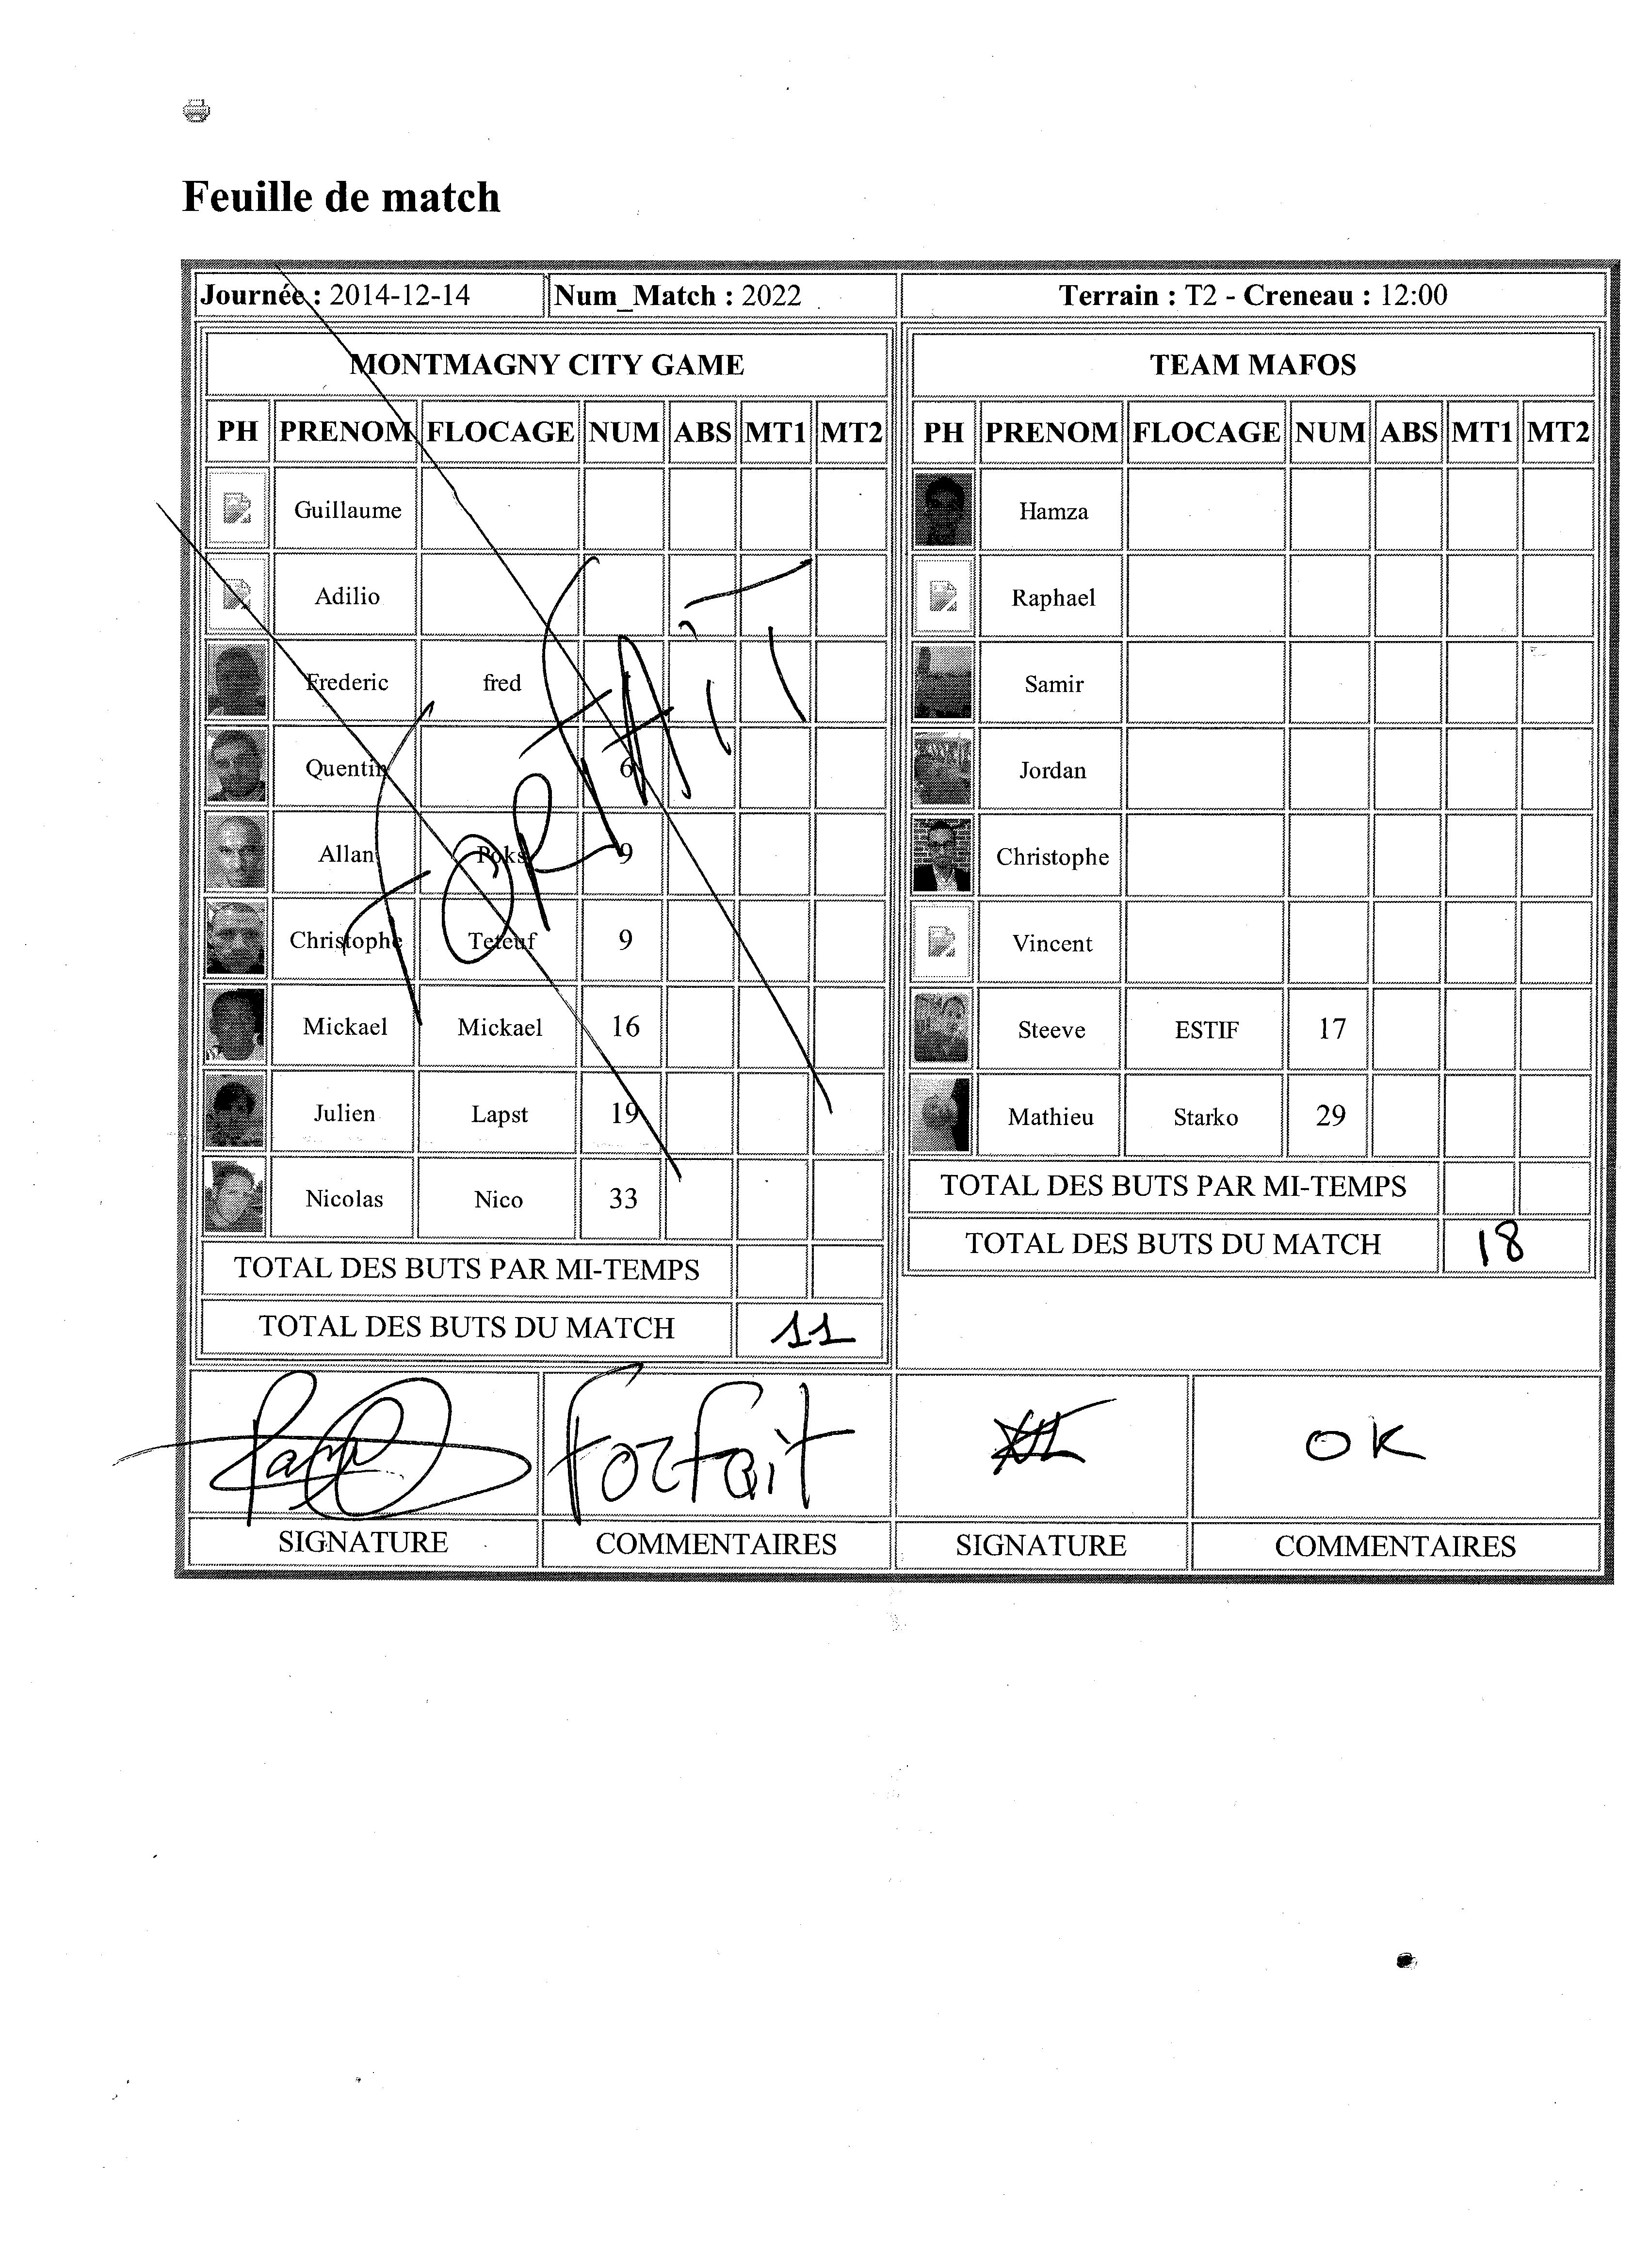 Feuille de match
Journée : 2014-12-14 Num_Match : 2022 Terrain : T2 - Creneau : 12:00
MONTMAGNY CITY GAME
PH PRENOM FLOCAGE NUM ABS MT1 MT2
Guillaume
Adilio
Frederic fred
Quentin 6
Allan Poks 9
Christophe Teteuf 9
Mickael Mickael 16
Julien Lapst 19
Nicolas Nico 33
FORFAIT
TOTAL DES BUTS PAR MI-TEMPS
TOTAL DES BUTS DU MATCH 11
TEAM MAFOS
PH PRENOM FLOCAGE NUM ABS MT1 MT2
Hamza
Raphael
Samir
Jordan
Christophe
Vincent
Steeve ESTIF 17
Mathieu Starko 29
TOTAL DES BUTS PAR MI-TEMPS
TOTAL DES BUTS DU MATCH 18
Forfait OK
SIGNATURE COMMENTAIRES SIGNATURE COMMENTAIRES